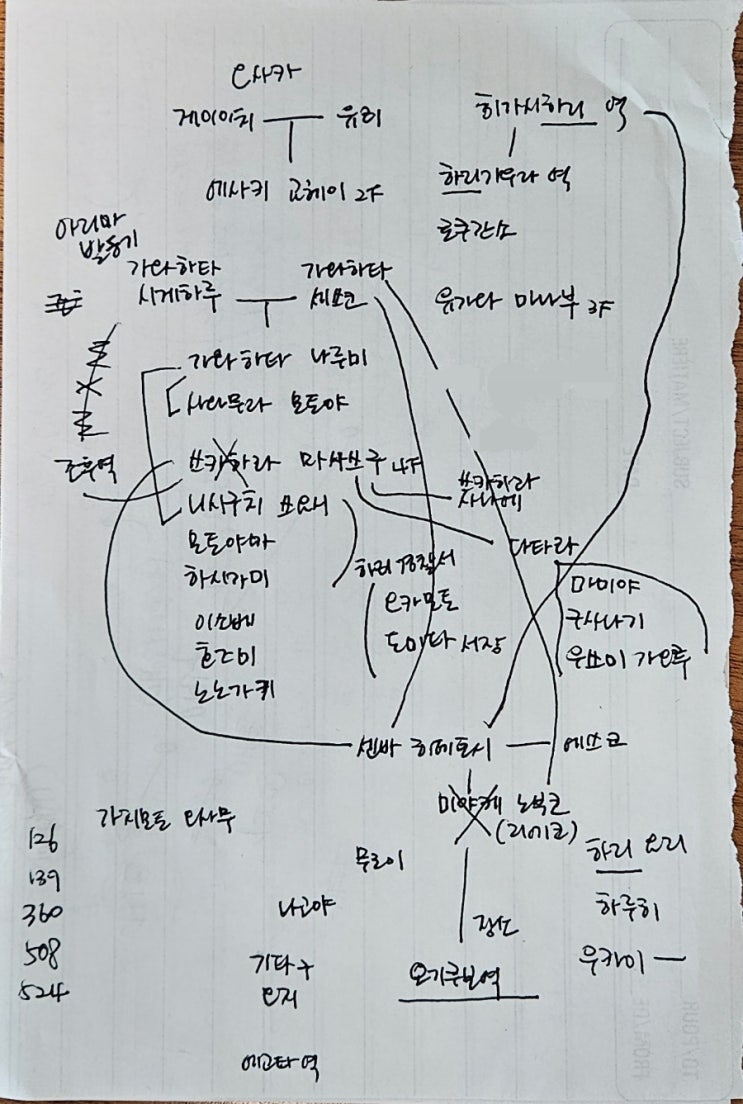 오사카
게이이치 유리
에사키 교헤이 2F
히가시하리 역
하리가우라 역
로쿠간소
유가와 마나부 3F
아리마
발동기
가와하타
시게하루
가와하타
세쓰코
가와하타 나루미
사와무라 모토야
쓰카하라 마사쓰구 4F
쓰카하라
사나에
조후역
니시구치 쓰요시
모토야마
하시가미
이소베
노노가키
하리 경찰서
오카모토
도미타 서장
다타라
마미야
구사나기
우쓰미 가오루
센바 히데토시
에쓰코
미야케 노부코
(리에코)
가지모토 오사무
무로이
나고야
기타구
오지
에고타 역
장소
오기쿠보역
하리 요리
하루히
우카이
126
139
360
508
524
SUBJECT/MATIÈRE
PROJ./DE
TO/POUR